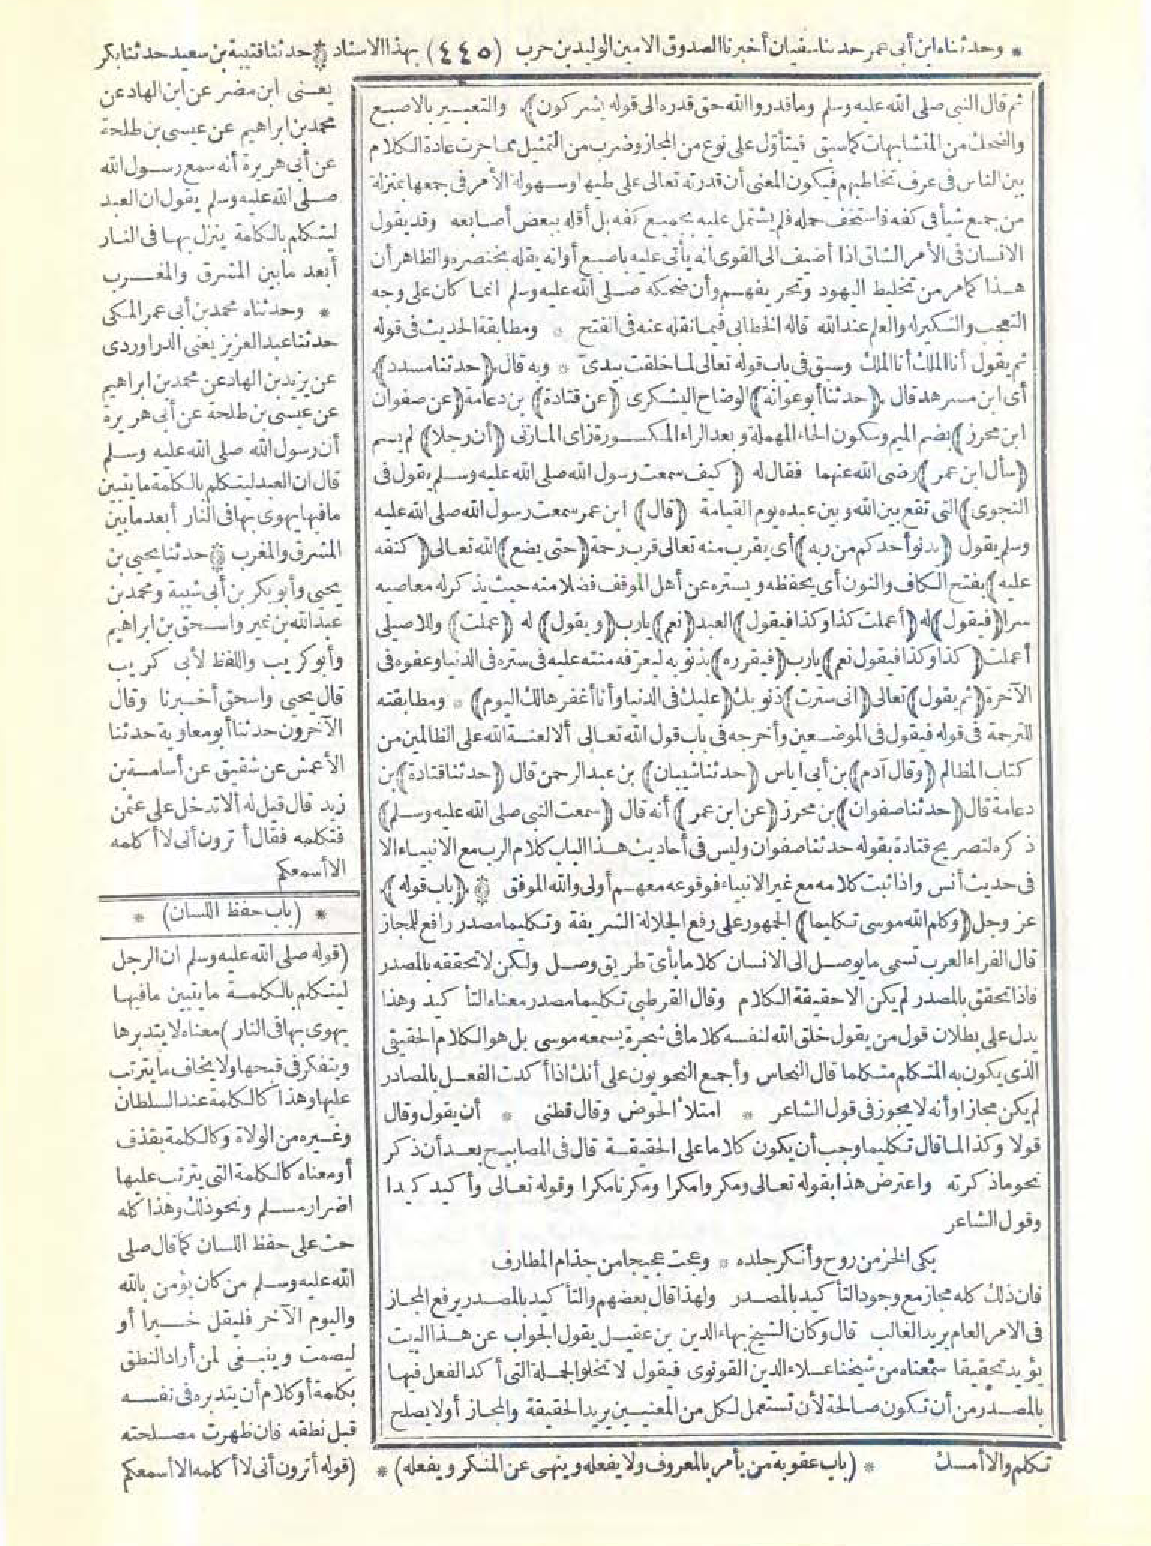 * وحدثناه ابن أبي عمر حدثنا سفيان أخبرنا الصدوق الامين الوليد بن حرب (٤٤٥) بهذا الاسناد * حدثنا قتيبة بن سعيد حدثنا بكر
يعنى ابن مضر عن ابن الهاد عن
محمد بن ابراهيم عن عيسى بن طلحة
عن أبى هريرة أنه سمع رسول الله
صلى الله عليه وسلم يقول ان العبد
ليتكلم بالكلمة ينزل بها فى النار
أبعد ما بين المشرق والمغرب
* وحدثناه محمد بن أبى عمر المكى
حدثنا عبد العزيز يعنى الدراوردى
عن يزيد بن الهاد عن محمد بن ابراهيم
عن عيسى بن طلحة عن أبى هريرة
أن رسول الله صلى الله عليه وسلم
قال ان العبد ليتكلم بالكلمة ما يتبين
ما فيها يهوى بها فى النار أبعد ما بين
المشرق والمغرب * حدثنا يحيى بن
يحيى وأبو بكر بن أبى شيبة ومحمد بن
عبد الله بن نمير واسحق بن ابراهيم
وأبو كريب واللفظ لأبى كريب
قال يحيى واسحق أخبرنا وقال
الآخرون حدثنا أبو معاوية حدثنا
الأعمش عن شقيق عن أسامة بن
زيد قال قيل له ألا تدخل على عثمن
فتكلمه فقال أترون أنى لا أكلمه
الا أسمعكم
* (باب حفظ اللسان) *
(قوله صلى الله عليه وسلم ان الرجل
ليتكلم بالكلمة ما يتبين ما فيها
يهوى بها فى النار) معناه لا يتدبرها
ويتفكر فى قبحها ولا يخاف ما يترتب
عليها وهذا كالكلمة عند السلطان
وغيره من الولاة وكالكلمة بقذف
أو معناه كالكلمة التى يترتب عليها
اضرار مسلم ونحو ذلك وهذا كله
حث على حفظ اللسان كما قال صلى
الله عليه وسلم من كان يؤمن بالله
واليوم الآخر فليقل خيرا أو
ليصمت وينبغى لمن أراد النطق
بكلمة أو كلام أن يتدبره فى نفسه
قبل نطقه فان ظهرت مصلحته
تكلم والا أمسك * (باب عقوبة من يأمر بالمعروف ولا يفعله وينهى عن المنكر ويفعله) * (قوله أترون أنى لا أكلمه الا أسمعكم
ثم قال النبى صلى الله عليه وسلم وما قدروا الله حق قدره الى قوله يشركون). والتعبير بالاصبع
والضحك من المتشابهات كما سبق فيتأول على نوع من المجاز وضرب من التمثيل مما جرت عادة الكلام
بين الناس فى عرف تخاطبهم فيكون المعنى أن قدرته تعالى على طيها وسهولة الأمر فى جمعها بمنزلة
من جمع شيأ فى كفه فاستخف حمله فلم يشتمل عليه بجميع كفه بل أقله ببعض أصابعه وقد يقول
الانسان فى الأمر الشاق اذا أضيف الى القوى انه يأتى عليه باصبع أو انه يقله بخنصره والظاهر أن
هذا كما مر من تخليط اليهود وتحريفهم وأن ضحكه صلى الله عليه وسلم انما كان على وجه
التعجب والنكير له والعلم عند الله قاله الخطابى فيما نقله عنه فى الفتح * ومطابقة الحديث فى قوله
ثم يقول أنا الملك أنا الملك وسبق فى باب قوله تعالى لما خلقت بيدى * وبه قال (حدثنا مسدد)
أى ابن مسرهد قال (حدثنا أبو عوانة) الوضاح اليشكرى (عن قتادة) بن دعامة (عن صفوان
ابن محرز) بضم الميم وسكون الحاء المهملة وبعد الراء المكسورة زاى المازنى (أن رجلا) لم يسم
(سأل ابن عمر) رضى الله عنهما فقال له (كيف سمعت رسول الله صلى الله عليه وسلم يقول فى
النجوى) التى تقع بين الله وبين عبده يوم القيامة (قال) ابن عمر سمعت رسول الله صلى الله عليه
وسلم يقول (يدنو أحدكم من ربه) أى يقرب منه تعالى قرب رحمة (حتى يضع) الله تعالى (كنفه
عليه) بفتح الكاف والنون أى يحفظه ويستره عن أهل الموقف فضلا منه حيث يذكر له معاصيه
سرا (فيقول) له (أعملت كذا وكذا فيقول) العبد (نعم) يارب (ويقول) له (عملت) وللاصيلى
أعملت (كذا وكذا فيقول نعم) يارب (فيقرره) بذنوبه ليعرفه منته عليه فى ستره فى الدنيا وعفوه فى
الآخرة (ثم يقول) تعالى (انى سترت) ذنوبك (عليك فى الدنيا وأنا أغفرها لك اليوم) * ومطابقته
للترجمة فى قوله فيقول فى الموضعين وأخرجه فى باب قول الله تعالى ألا لعنة الله على الظالمين من
كتاب المظالم (وقال آدم) بن أبى اياس (حدثنا شيبان) بن عبد الرحمن قال (حدثنا قتادة) بن
دعامة قال (حدثنا صفوان) بن محرز (عن ابن عمر) أنه قال (سمعت النبى صلى الله عليه وسلم)
ذكره لتصريح قتادة بقوله حدثنا صفوان وليس فى أحاديث هذا الباب كلام الرب مع الانبياء الا
فى حديث أنس واذا ثبت كلامه مع غير الانبياء فوقوعه معهم أولى والله الموفق * (باب قوله)
عز وجل (وكلم الله موسى تكليما) الجمهور على رفع الجلالة الشريفة وتكليما مصدر رافع للمجاز
قال الفراء العرب تسمى ما يوصل الى الانسان كلاما بأى طريق وصل ولكن لا تحققه بالمصدر
فاذا تحقق بالمصدر لم يكن الا حقيقة الكلام وقال القرطبى تكليما مصدر معناه التأكيد وهذا
يدل على بطلان قول من يقول خلق الله لنفسه كلاما فى شجرة يسمعه موسى بل هو الكلام الحقيقى
الذى يكون به المتكلم متكلما قال النحاس وأجمع النحويون على أنك اذا أكدت الفعل بالمصادر
لم يكن مجازا وأنه لا يجوز فى قول الشاعر * امتلأ الحوض وقال قطنى * أن يقول وقال
قولا وكذا لما قال تكليما وجب أن يكون كلاما على الحقيقة قال فى المصابيح بعد أن ذكر
نحو ما ذكرته واعترض هذا بقوله تعالى ومكروا مكرا ومكرنا مكرا وقوله تعالى وأكيد كيدا
وقول الشاعر
بكى الخز من روح وأنكر جلده * وعجت عجيجا من جذام المطارف
فان ذلك كله مجاز مع وجود التأكيد بالمصدر ولهذا قال بعضهم والتأكيد بالمصدر يرفع المجاز
فى الامر العام يريد الغالب قال وكان الشيخ بهاء الدين بن عقيل يقول الجواب عن هذا البيت
يؤيد تحقيقا سمعناه من شيخنا علاء الدين القونوى فيقول لا تخلو الجملة التى أكد الفعل فيها
بالمصدر من أن تكون صالحة لأن تستعمل لكل من المعنيين يريد الحقيقة والمجاز أو لا يصلح